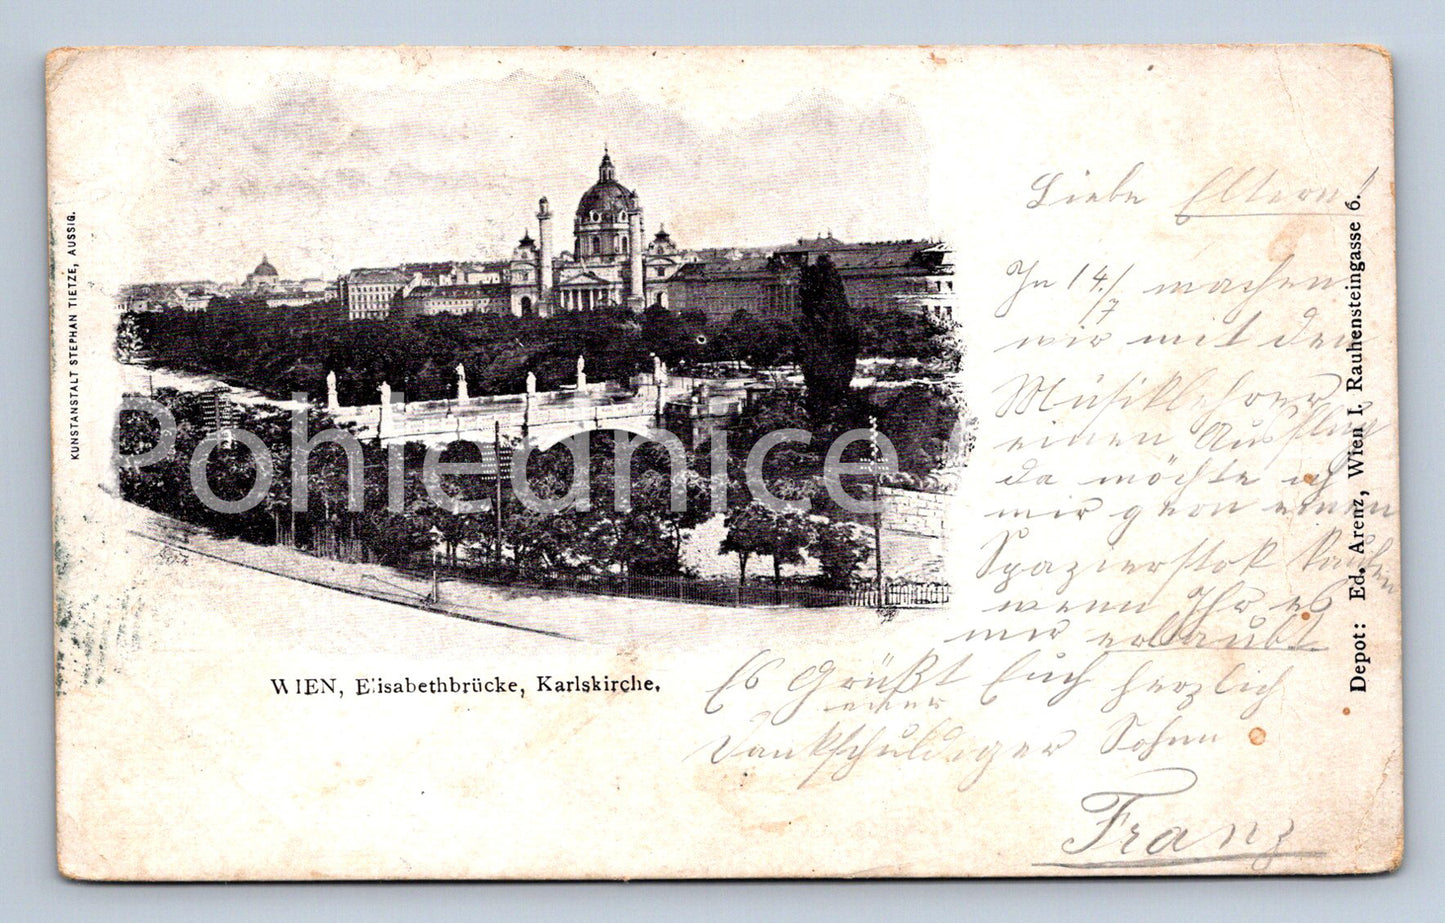 KUNSTANSTALT STEPHAN TIETZE, AUSSIG.
WIEN, Elisabethbrücke, Karlskirche.
Depot: Ed. Arenz, Wien I, Rauhensteingasse 6.
Liebe Eltern!
In 14./7 machen
wir mit den
Musiklehrer
einen Ausflug
da möchte ich
mir gern einen
Spazierstok kaufen
wenn Ihr es
mir erlaubt.
Es Grüßt Euch herzlich
euer
Dankschuldiger Sohn
Franz
Pohlednice